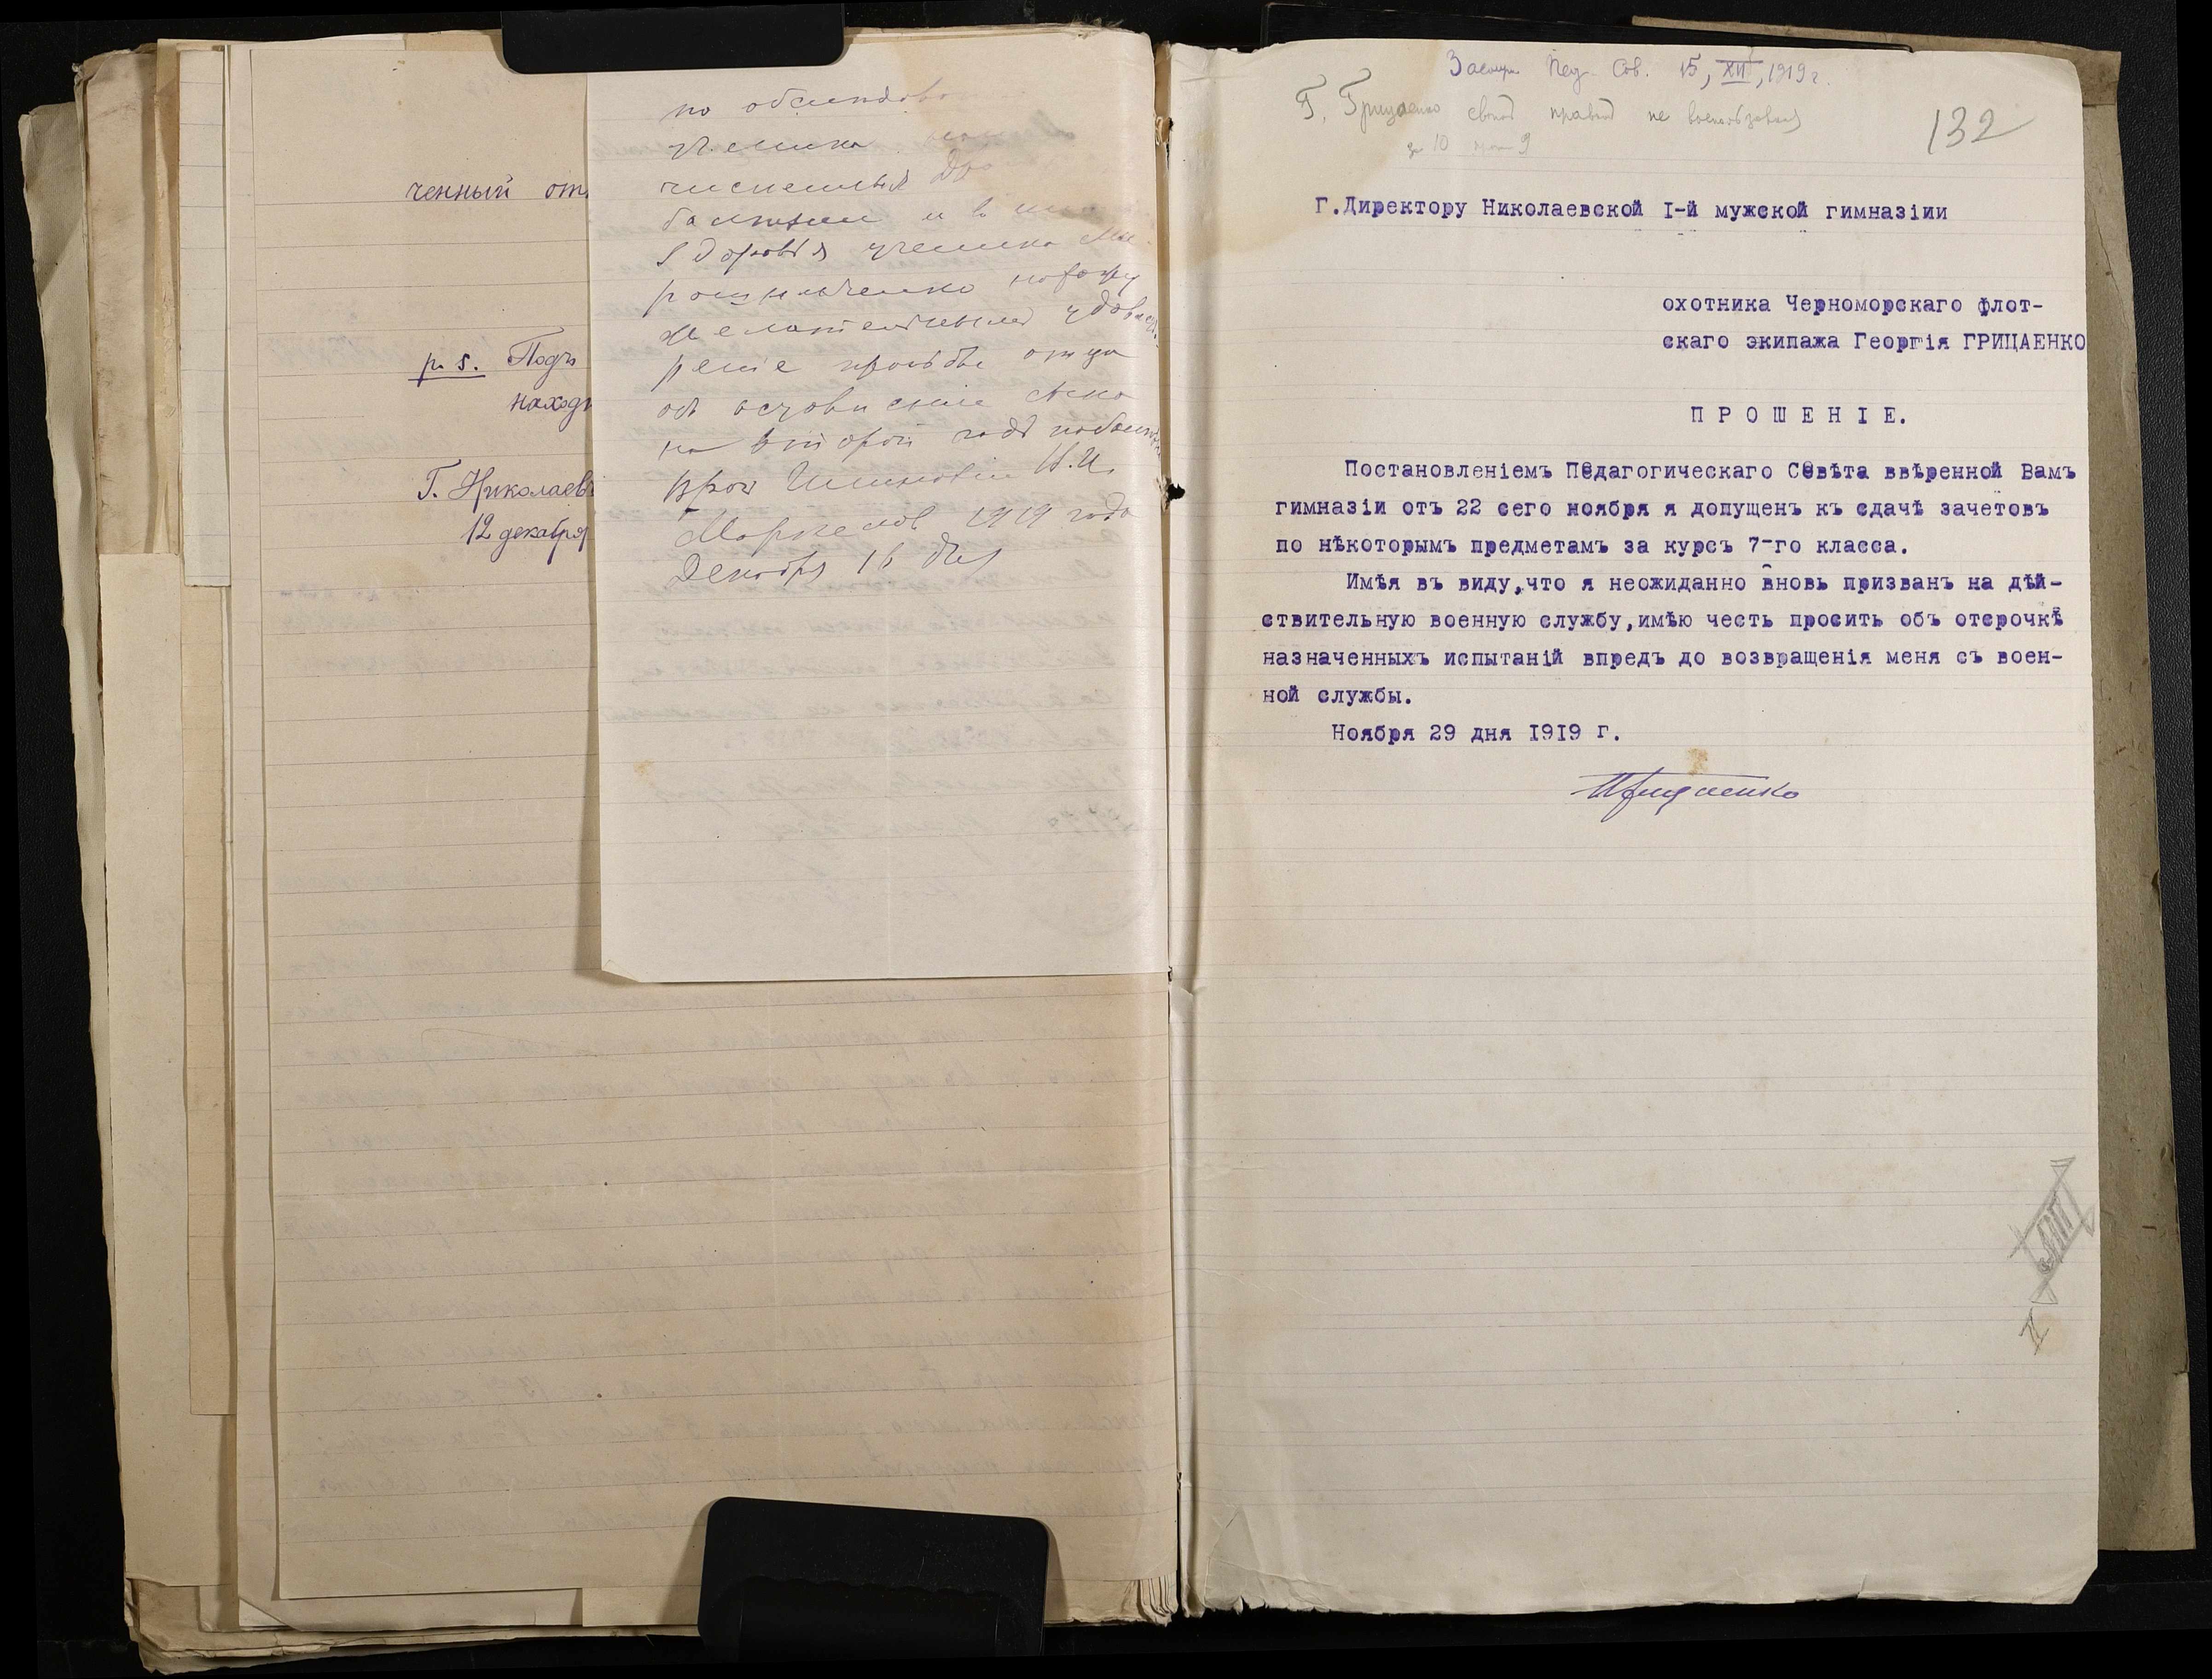 ченный отъ
р. s. Подъ
находи
Г. Николаевъ
12 декабря
по обслѣдова
ученика
численныя
и въ
здоровья ученика Ми
рошниченко нахожу
желательнымъ удовлетво
реніе просьбы отца
объ оставленіи его
на второй годъ
Врач Н. И.
1919 года
Декабря 16 дня
Засѣд. Пед. Сов. 15, XII, 1919 г.
Г. Грицаенко своей правой не воспользовался
132
Г.Директору Николаевской I-й мужской гимназіии
охотника Черноморскаго флот-
скаго экипажа Георгія ГРИЦАЕНКО
П Р О Ш Е Н І Е.
Постановленіемъ Педагогическаго Совѣта ввѣренной Вамъ
гимназіи отъ 22 сего ноября я допущенъ къ сдачѣ зачетовъ
по нѣкоторымъ предметамъ за курсъ 7-го класса.
Имѣя въ виду,что я неожиданно вновь призванъ на дѣй-
ствительную военную службу,имѣю честь просить объ отсрочкѣ
назначенныхъ испытаній впредъ до возвращенія меня съ воен-
ной службы.
Ноября 29 дня 1919 г.
Грицаенко